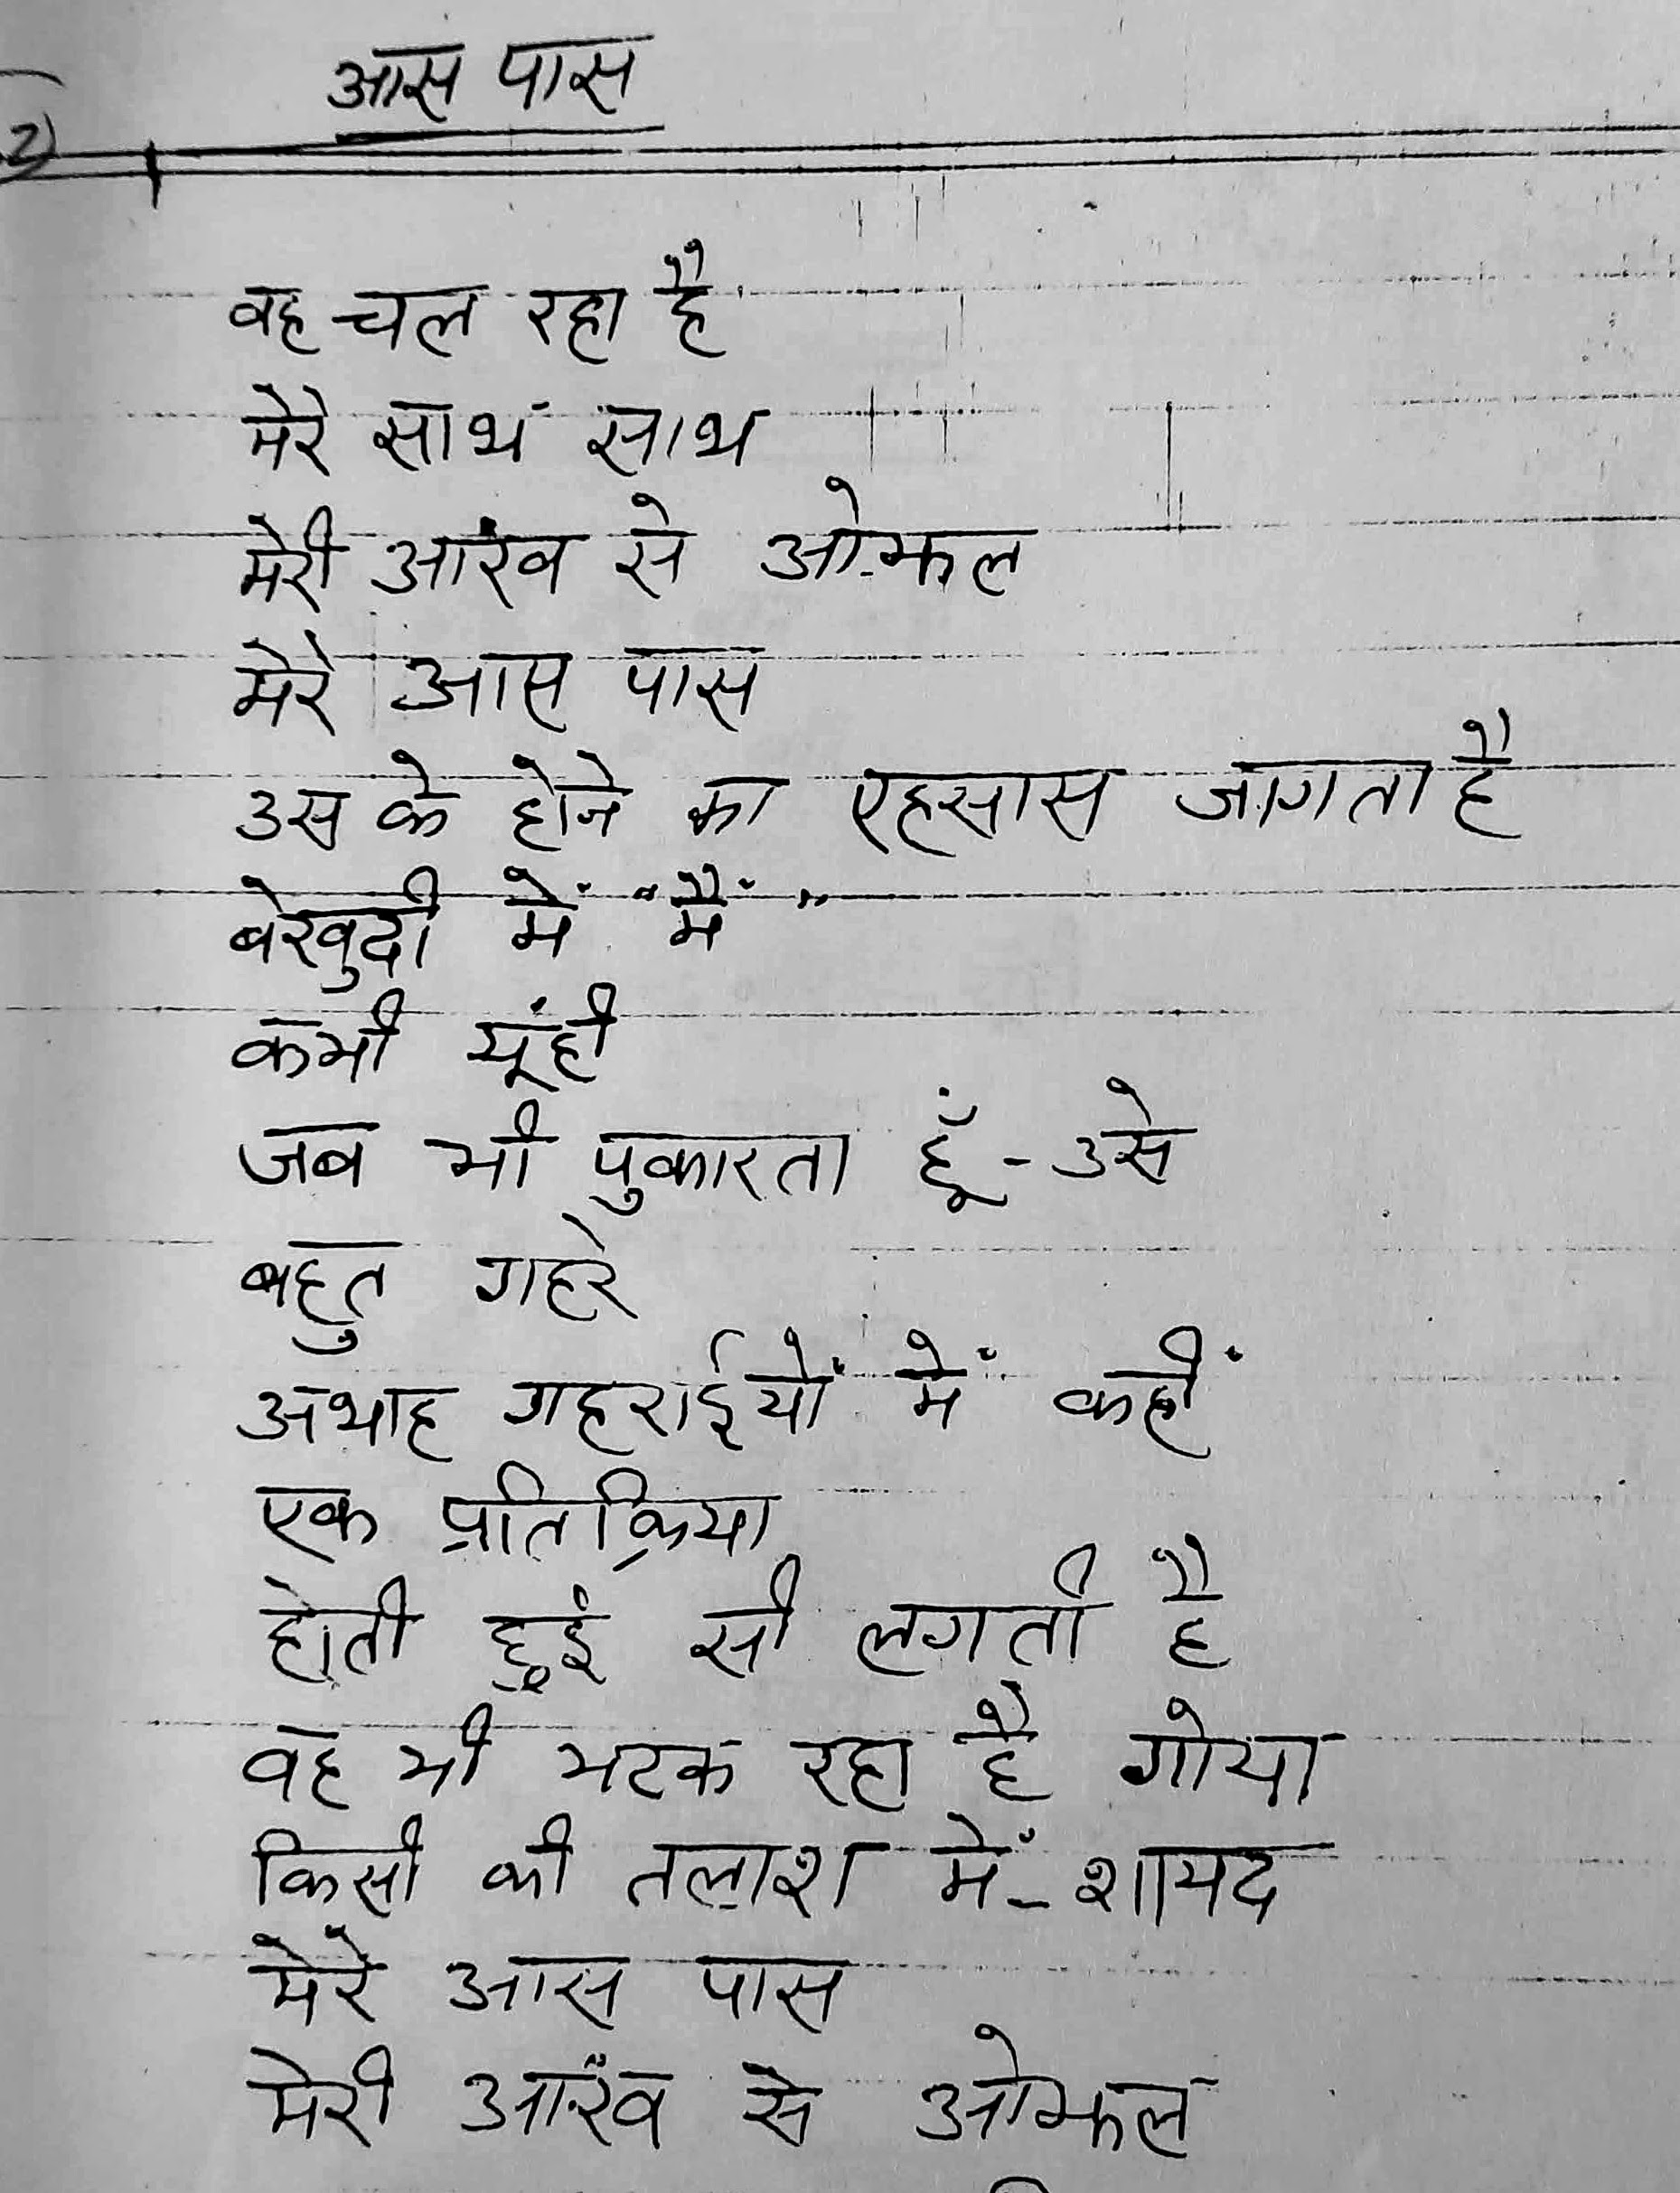 आस पास
2)
वह चल रहा है
मेरे साथ साथ
मेरी आंख से ओझल
मेरे आस पास
उस के होने का एहसास जागता है
बेखुदी में "मैं"
कभी यूंही
जब भी पुकारता हूँ - उसे
बहुत गहरे
अथाह गहराईयों में कहीं
एक प्रतिक्रिया
होती हुई सी लगती है
वह भी भटक रहा है गोया
किसी की तलाश में - शायद
मेरे आस पास
मेरी आंख से ओझल